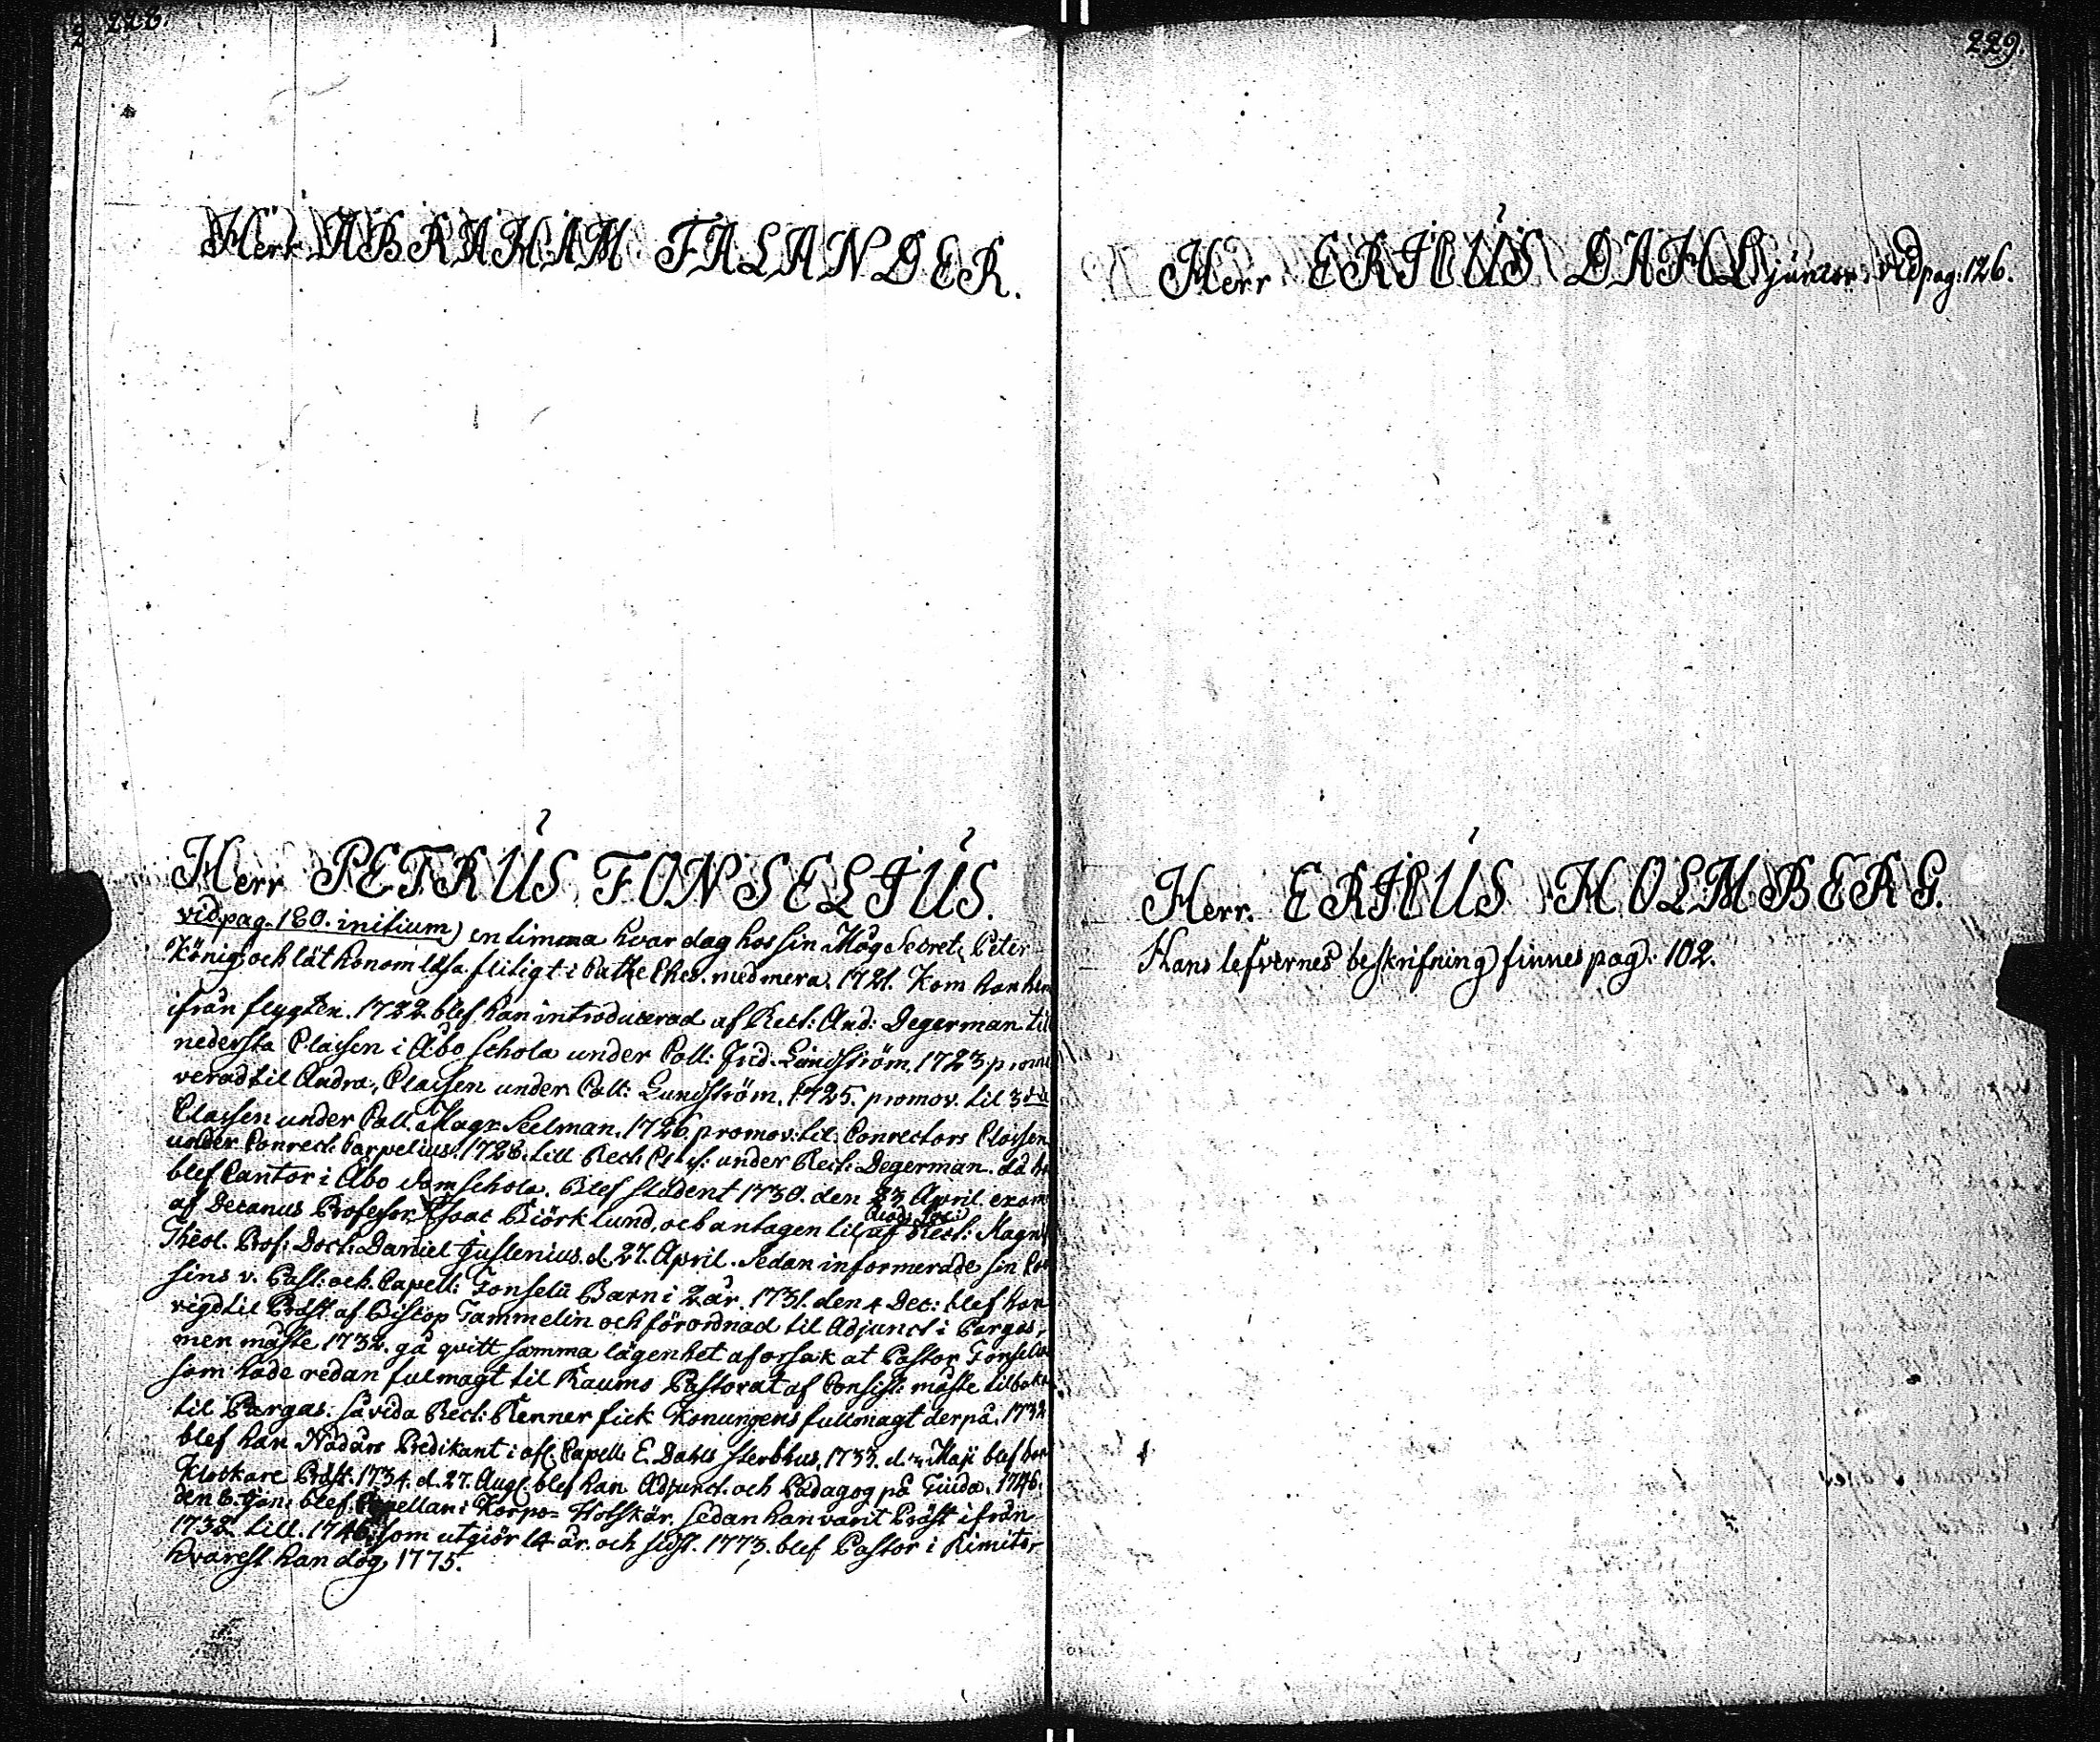 228.
Herr ABRAHAM FALANDER.
Herr PETRUS FONSELIUS.
vid pag. 180. initium) en timma hvar dag hos sin Måg Secret: Peter
König och lät honom läsa flitigt i Cathe Ches. med mera. 1721. Kom han hem
ifrån flygten. 1722 blef han introducerad af Rect: And: Degerman til
nedersta Classen i Åbo schola under Coll: Frid. Lundström, 1723 promo
verad til Andra, Classen under Coll: Lundström. 1725. promov. til 3dia
Classen under Coll: Magr. Seelman. 1726. promov: til Conrectors Classen
under Conrect: Carpelius. 1728. till Rect: Class: under Rect: Degerman. då han
blef Cantor i Åbo domschola. Blef student 1730. den 23 April. exam
af Decanus Professor Isaac Biörklund, och antagen til af Rect: Magnif
Theol. Prof: Doct: Daniel Juslenius. d. 27. April. Sedan informerade sin
sins v. Past: och Capell: Fonselii Barn i 2 år. 1731. den 4 Dec: blef han
vigd til Präst af Biskop Gammelin och förordnad til Adjunct i Pargas,
men måste 1732. gå qvitt samma lägenhet af orsak at Pastor Fonselius
som hade redan fulmagt til Raumo Pastorat af Consist: måste tilbaka
til Pargas. såvida Rect: Renner fick Konungens fullmagt derpå. 1732
blef han Nådårs Predikant i afl. Capell: E. Dahls Sterbhus, 1733. d. Maji blef han
Klockare Präst. 1734. d. 27. Aug: blef han Adjunct. och Pædagog på 1746.
den 8. Jan: blef Capellan i Korpo= Hotskär. sedan han varit Präst ifrån
1732 till. 1746. som utgiör 14 år. och sidst. 1773. blef Pastor i Kimito,
hvarest han dog 1775.
229.
Herr ERICUS DAHL junior. vid pag: 126.
Herr. ERICUS HOLMBERG.
Hans lefvernes beskrifning finnes pag: 102.